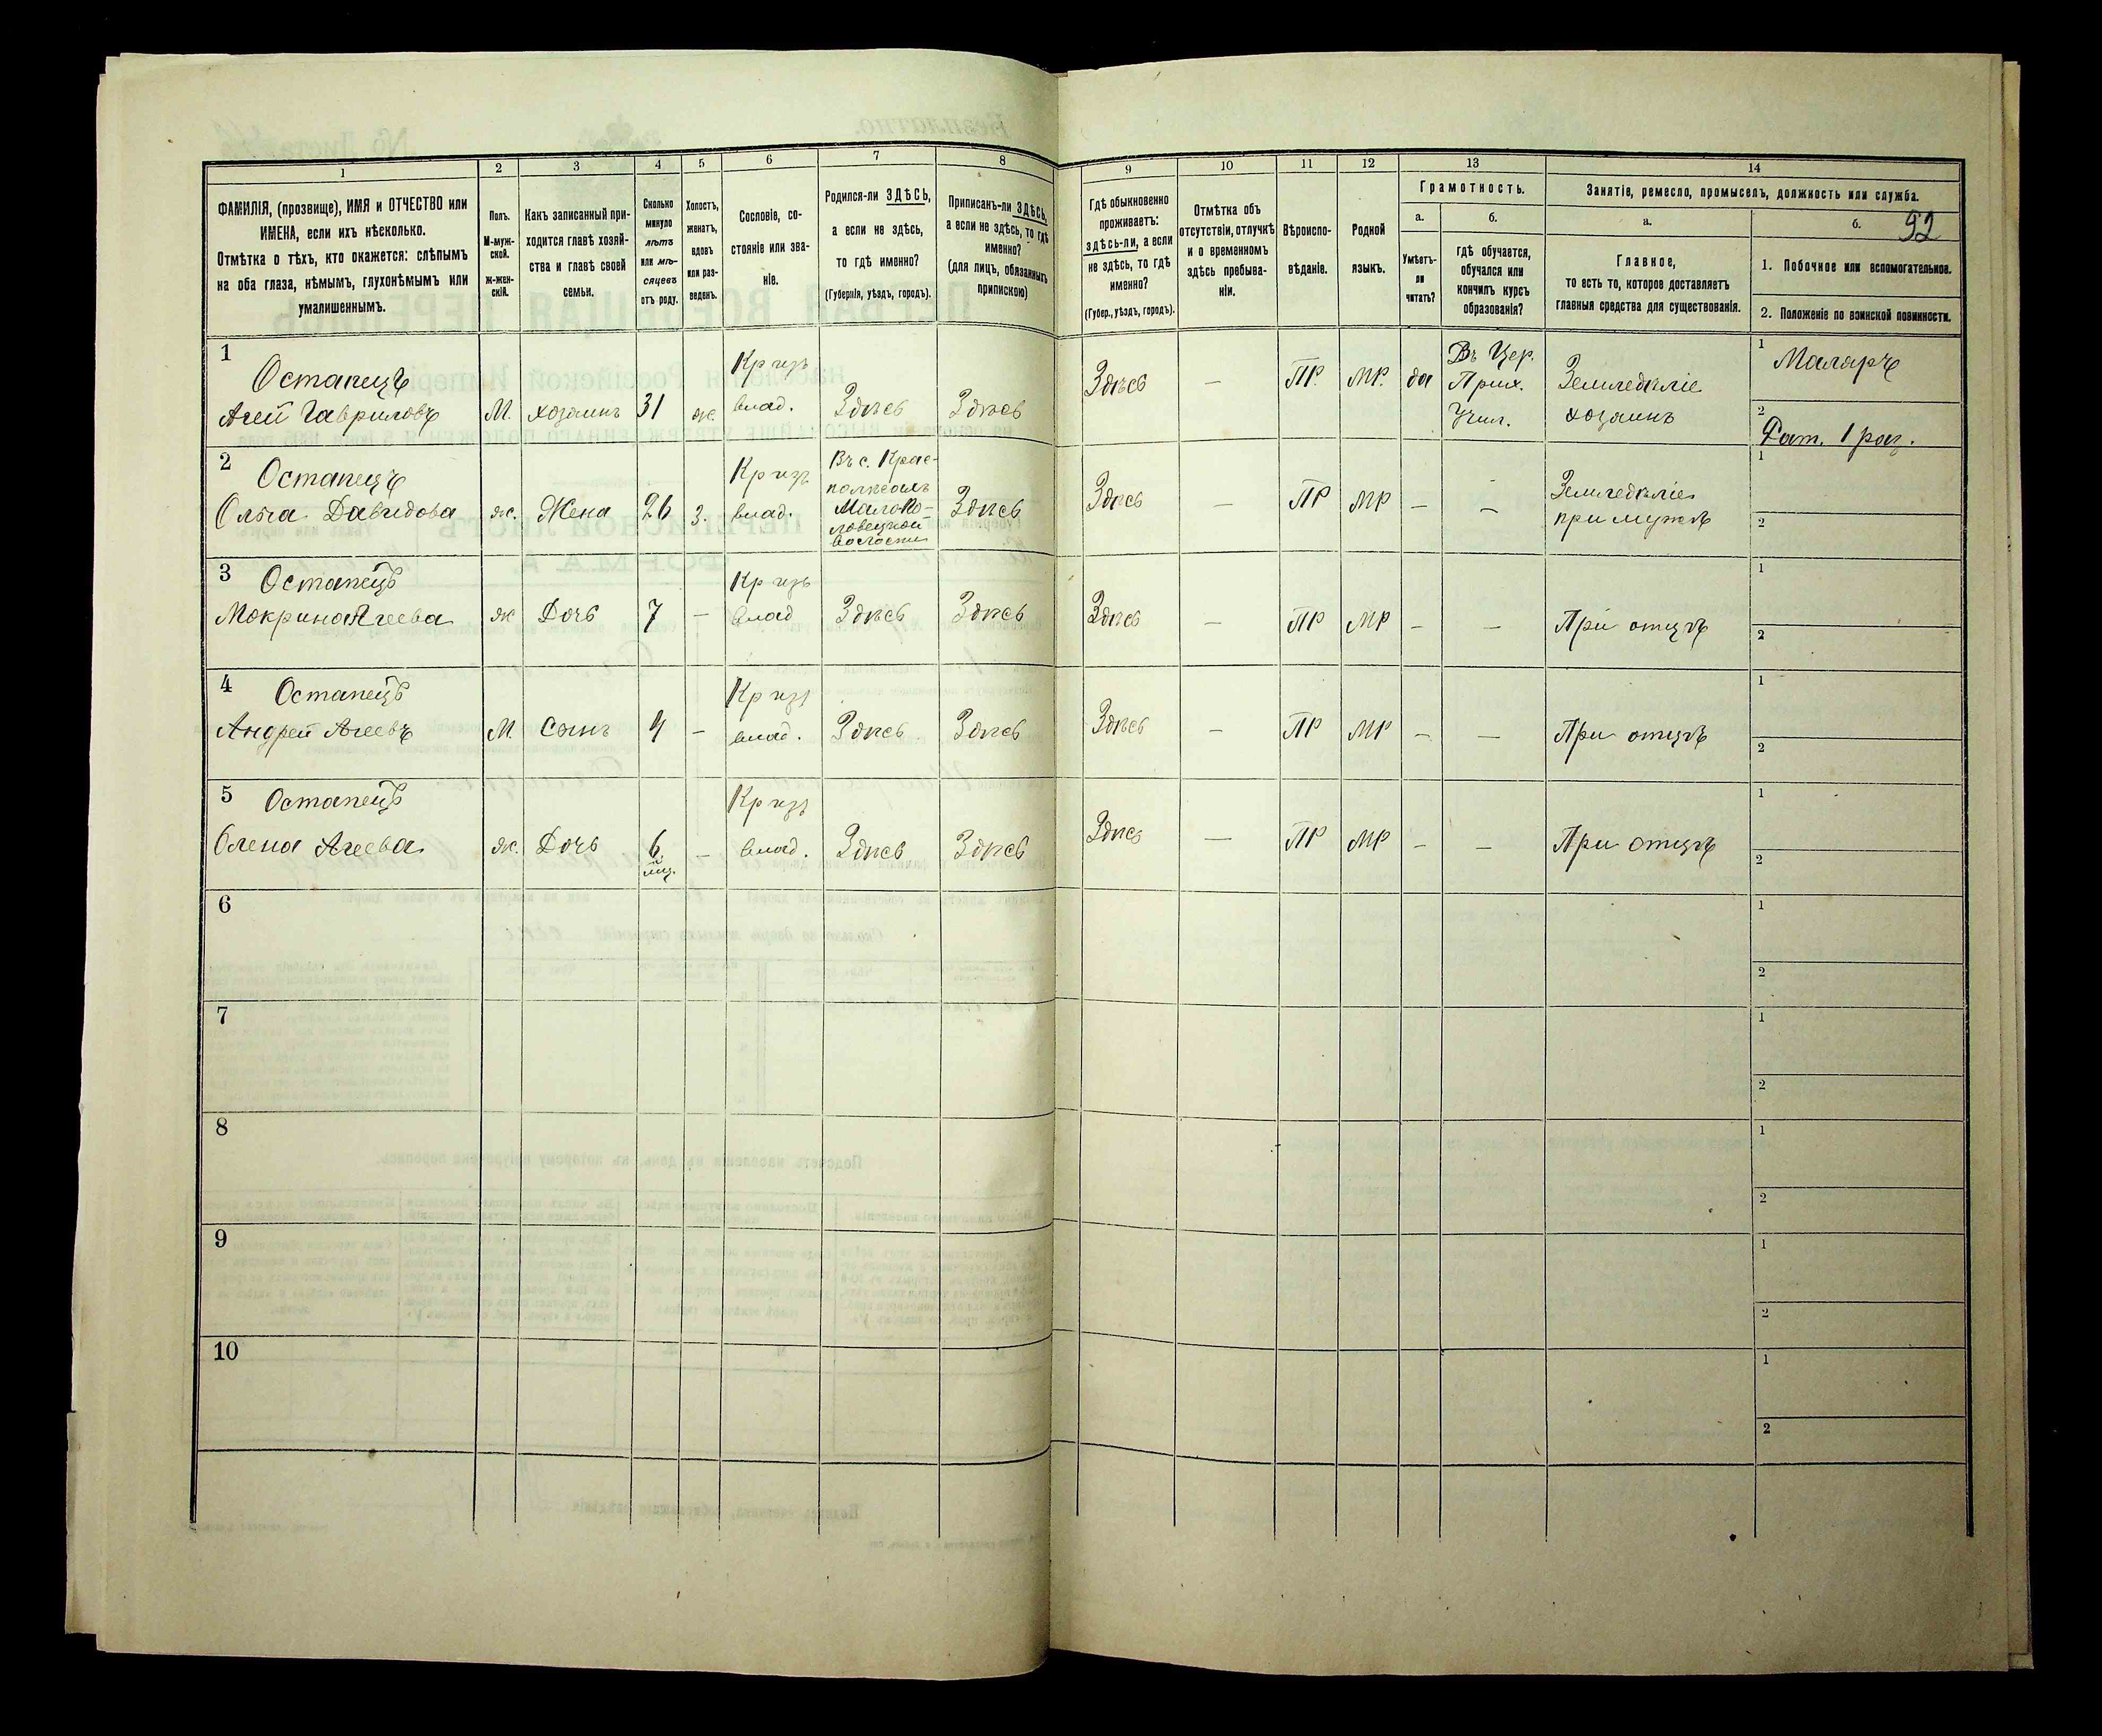 1
2
3
4
5
6
7
8
9
10
11
12
13
14
ФАМИЛІЯ, (прозвище), ИМЯ и ОТЧЕСТВО или
ИМЕНА, если ихъ нѣсколько.
Отмѣтка о тѣхъ, кто окажется: слѣпымъ
на оба глаза, нѣмымъ, глухонѣмымъ или
умалишеннымъ.
Полъ.
М-муж-
ской.
Ж-жен-
скій.
Какъ записанный при-
ходится главѣ хозяй-
ства и главѣ своей
семьи.
Сколько
минуло
лѣтъ
или мѣ-
сяцевъ
отъ роду.
Холостъ,
женатъ,
вдовъ
или раз-
веденъ.
Сословіе, со-
стояніе или зва-
ніе.
Родился-ли ЗДѢСЬ,
а если не здѣсь,
то гдѣ именно?
(Губернія, уѣздъ, городъ).
Приписанъ-ли ЗДѢСЬ,
а если не здѣсь, то гдѣ
именно?
(для лицъ, обязанныхъ
припискою)
Гдѣ обыкновенно
проживаетъ:
здѣсь-ли, а если
не здѣсь, то гдѣ
именно?
(Губер., уѣздъ, городъ).
Отмѣтка объ
отсутствіи, отлучкѣ
и о временномъ
здѣсь пребыва-
ніи.
Вѣроиспо-
вѣданіе.
Родной
языкъ.
Грамотность.
а.
Умѣетъ-
ли
читать?
б.
гдѣ обучается,
обучался или
кончилъ курсъ
образованія?
Занятіе, ремесло, промыселъ, должность или служба.
а.
Главное,
то есть то, которое доставляетъ
главныя средства для существованія.
б.
92
1. Побочное или вспомогательное.
2. Положеніе по воинской повинности.
1
Остапецъ
Агей Гавриловъ
М.
хозяинъ
31
ж.
Кр изъ
влад.
Здѣсь
Здѣсь
Здѣсь
—
ПР.
МР.
да
Въ Цер.
Прих.
Учил.
Земледѣліе
хозяинъ
1
Маляръ
2
Рат. 1 раз.
2
Остапецъ
Ольга Давидова
ж.
Жена
26
з.
Кр изъ
влад.
Въ с. Крас-
Мало
волости
Здѣсь
Здѣсь
—
ПР
МР
—
—
Земледѣліе
при мужѣ
1
2
3
Остапецъ
Мокрина Агеева
ж
Дочь
7
—
Кр изъ
влад
Здѣсь
Здѣсь
Здѣсь
—
ПР
МР
—
—
При отцѣ
1
2
4
Остапецъ
Андрей Агеевъ
М
Сынъ
4
—
Кр изъ
влад.
Здѣсь
Здѣсь
Здѣсь
—
ПР
МР
—
—
При отцѣ
1
2
5
Остапецъ
Олена Агеева
ж.
Дочь
6
мц.
—
Кр изъ
влад.
Здѣсь
Здѣсь
Здѣсь
—
ПР
МР
—
—
При отцѣ
1
2
6
1
2
7
1
2
8
1
2
9
1
2
10
1
2